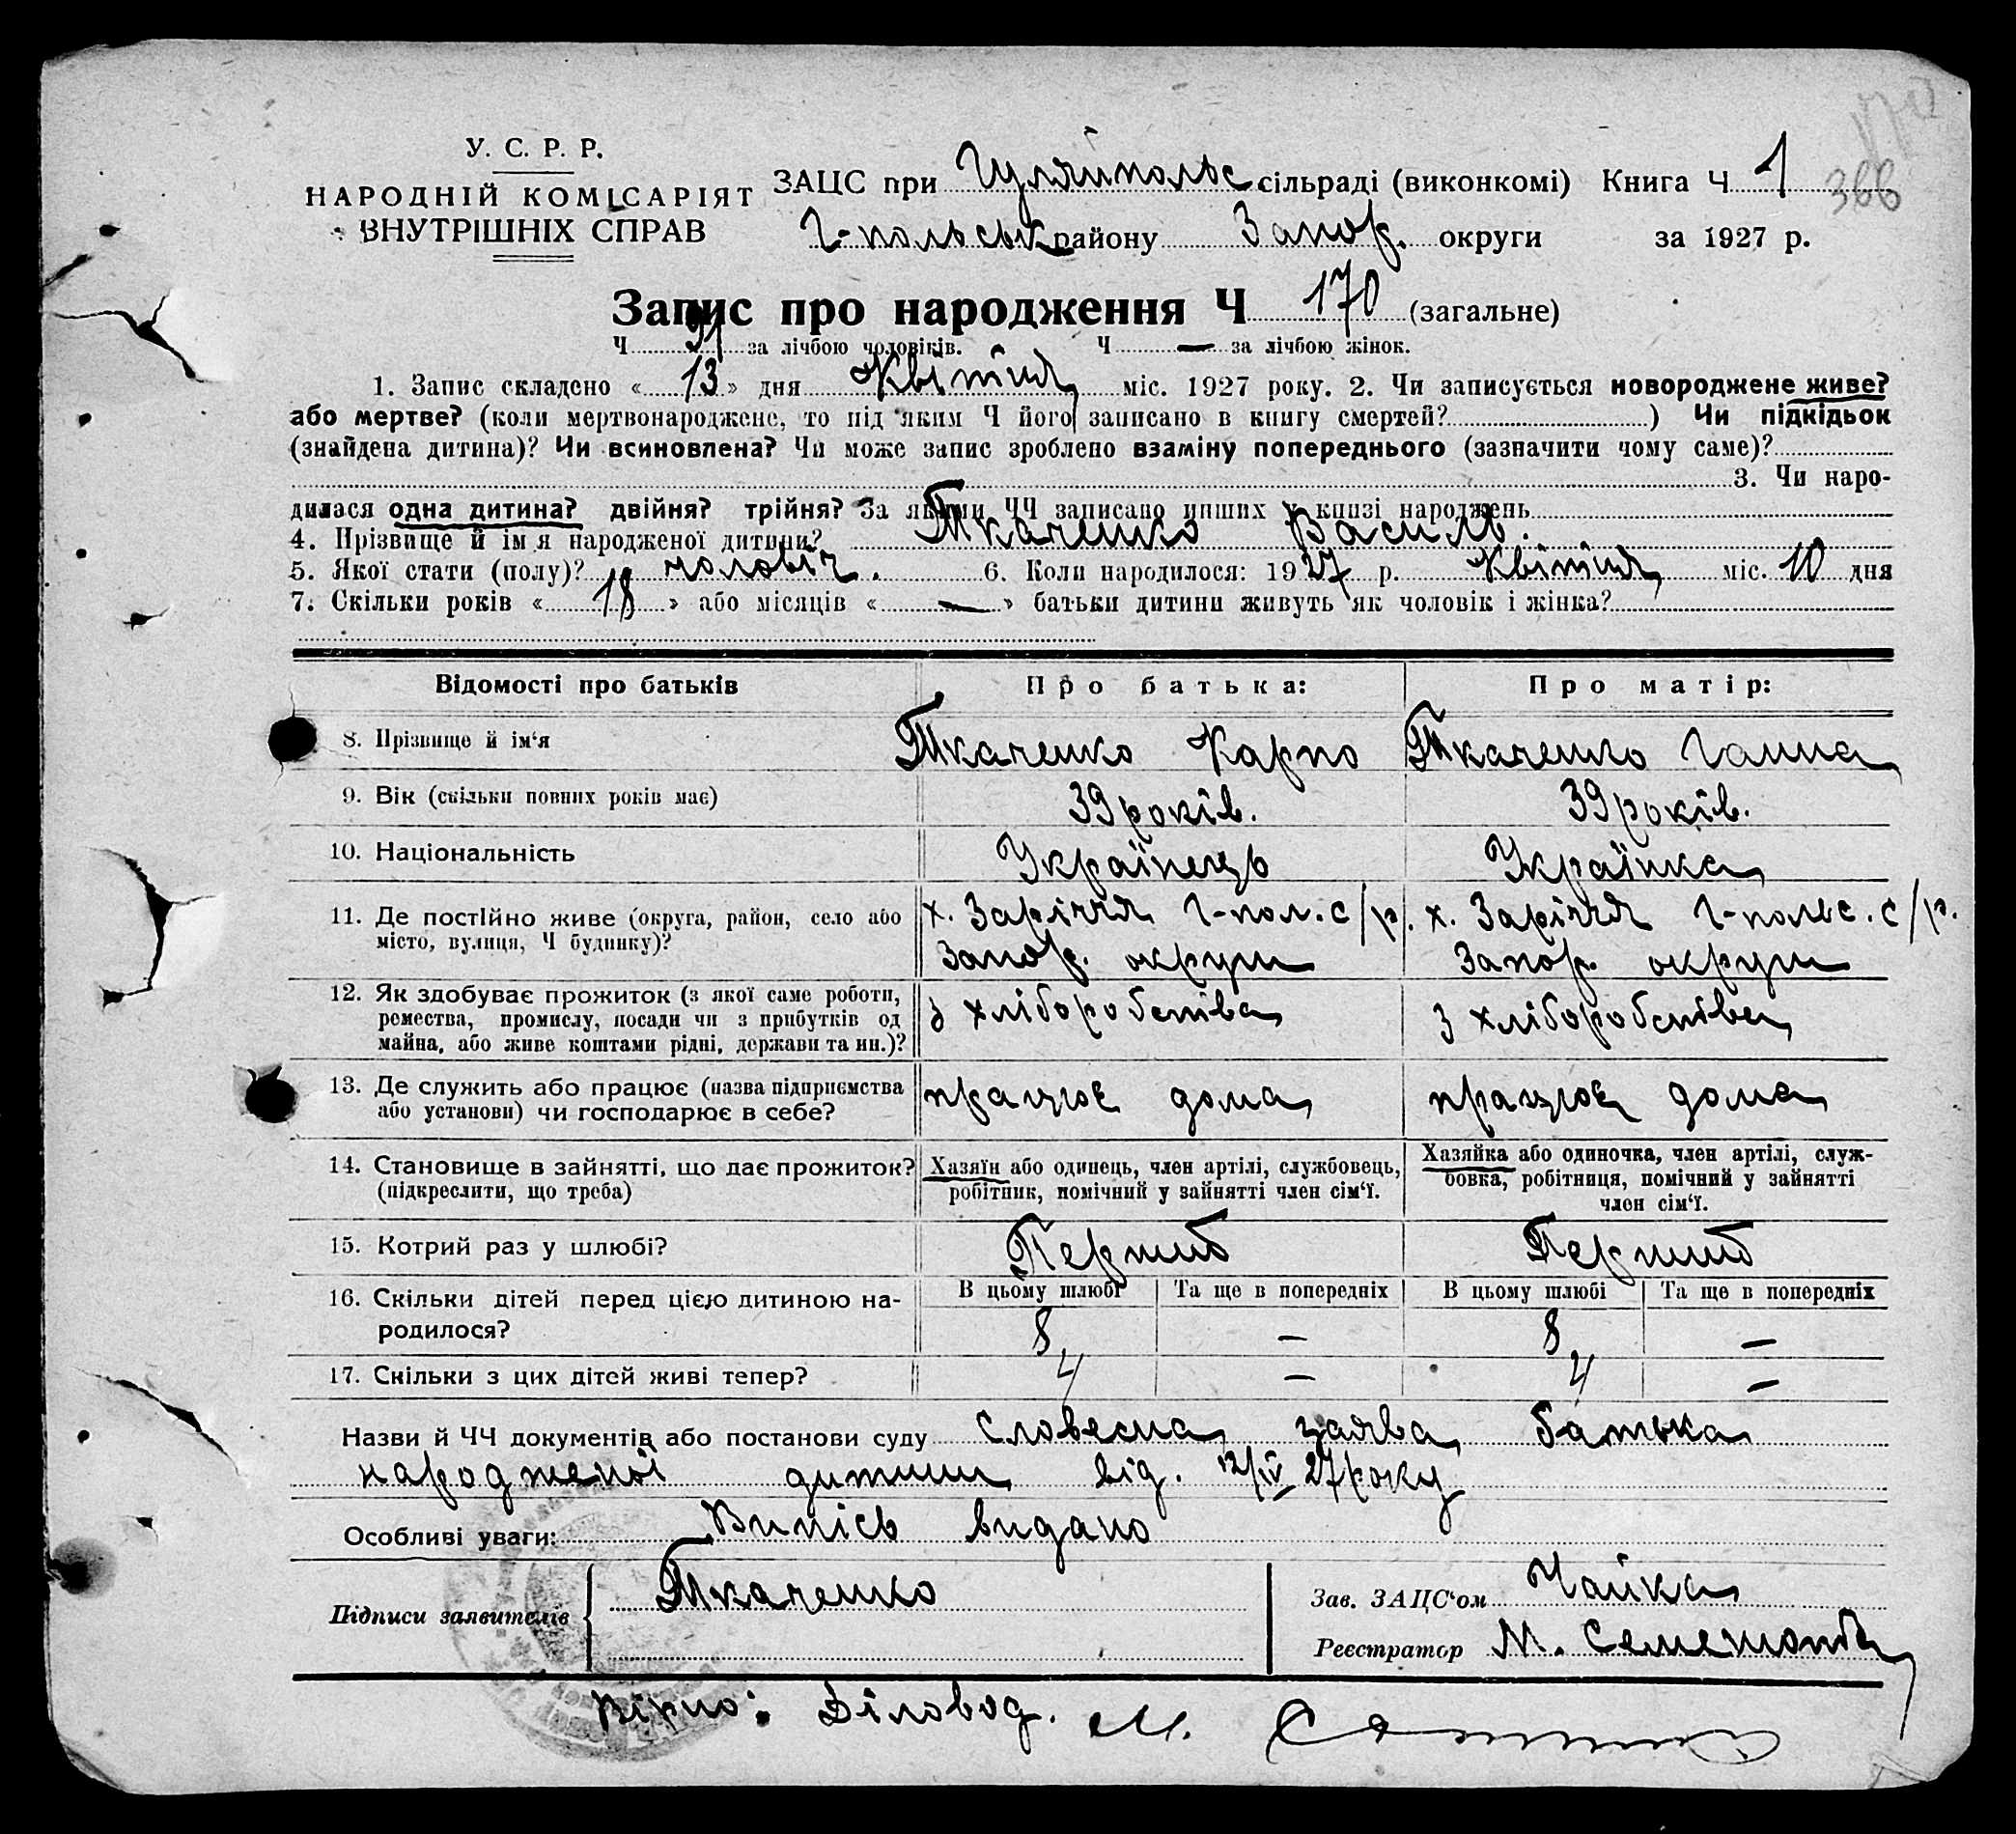 170
366
У. С. Р. Р.
НАРОДНІЙ КОМІСАРІЯТ
ВНУТРІШНІХ СПРАВ
ЗАЦС при Гуляйпольс сільраді (виконкомі) Книга Ч 1
Г-польськ району Запор. округи за 1927 р.
Запис про народження Ч 170 (загальне)
Ч 91 за лічбою чоловіків. Ч — за лічбою жінок.
1. Запис складено « 13 » дня Квітня міс. 1927 року. 2. Чи записується новороджене живе?
або мертве? (коли мертвонароджене, то під яким Ч його записано в книгу смертей? ) Чи підкідьок
(знайдена дитина)? Чи всиновлена? Чи може запис зроблено взаміну попереднього (зазначити чому саме)?
3. Чи наро-
дилася одна дитина? двійня? трійня? За якими ЧЧ записано инших у книзі народжень
4. Прізвище й ім'я народженої дитини? Ткаченко Василь.
5. Якої стати (полу)? чоловіч. 6. Коли народилося: 1927 р. Квітня міс. 10 дня
7. Скільки років « 18 » або місяців « — » батьки дитини живуть як чоловік і жінка?
Відомості про батьків Про батька: Про матір:
8. Прізвище й ім'я Ткаченко Карпо Ткаченко Ганна
9. Вік (скільки повних років має) 39 років. 39 років.
10. Національність Українець Українка
11. Де постійно живе (округа, район, село або х. Заріччя Г-пол. с/р. х. Заріччя Г-польс. с/р.
місто, вулиця, Ч будинку)? Запор. округи Запор. округи
12. Як здобуває прожиток (з якої саме роботи, з хліборобства з хліборобства
ремества, промислу, посади чи з прибутків од
майна, або живе коштами рідні, держави та ин.)?
13. Де служить або працює (назва підприємства працює дома працює дома
або установи) чи господарює в себе?
14. Становище в зайнятті, що дає прожиток? Хазяїн або одинець, член артілі, службовець, Хазяйка або одиночка, член артілі, служ-
(підкреслити, що треба) робітник, помічний у зайнятті член сім'ї. бовка, робітниця, помічний у зайнятті
член сім'ї.
15. Котрий раз у шлюбі? Перший Перший
16. Скільки дітей перед цією дитиною на- В цьому шлюбі Та ще в попередніх В цьому шлюбі Та ще в попередніх
родилося? 8 — 8 —
17. Скільки з цих дітей живі тепер? 4 — 4 —
Назви й ЧЧ документів або постанови суду словесна заява батька
народженої дитини від. 12/IV 27 року
Особливі уваги: Випісь видано
Підписи заявителів Ткаченко
Зав. ЗАЦС'ом Чайка
Реєстратор М.
Вірно: Діловод. М.